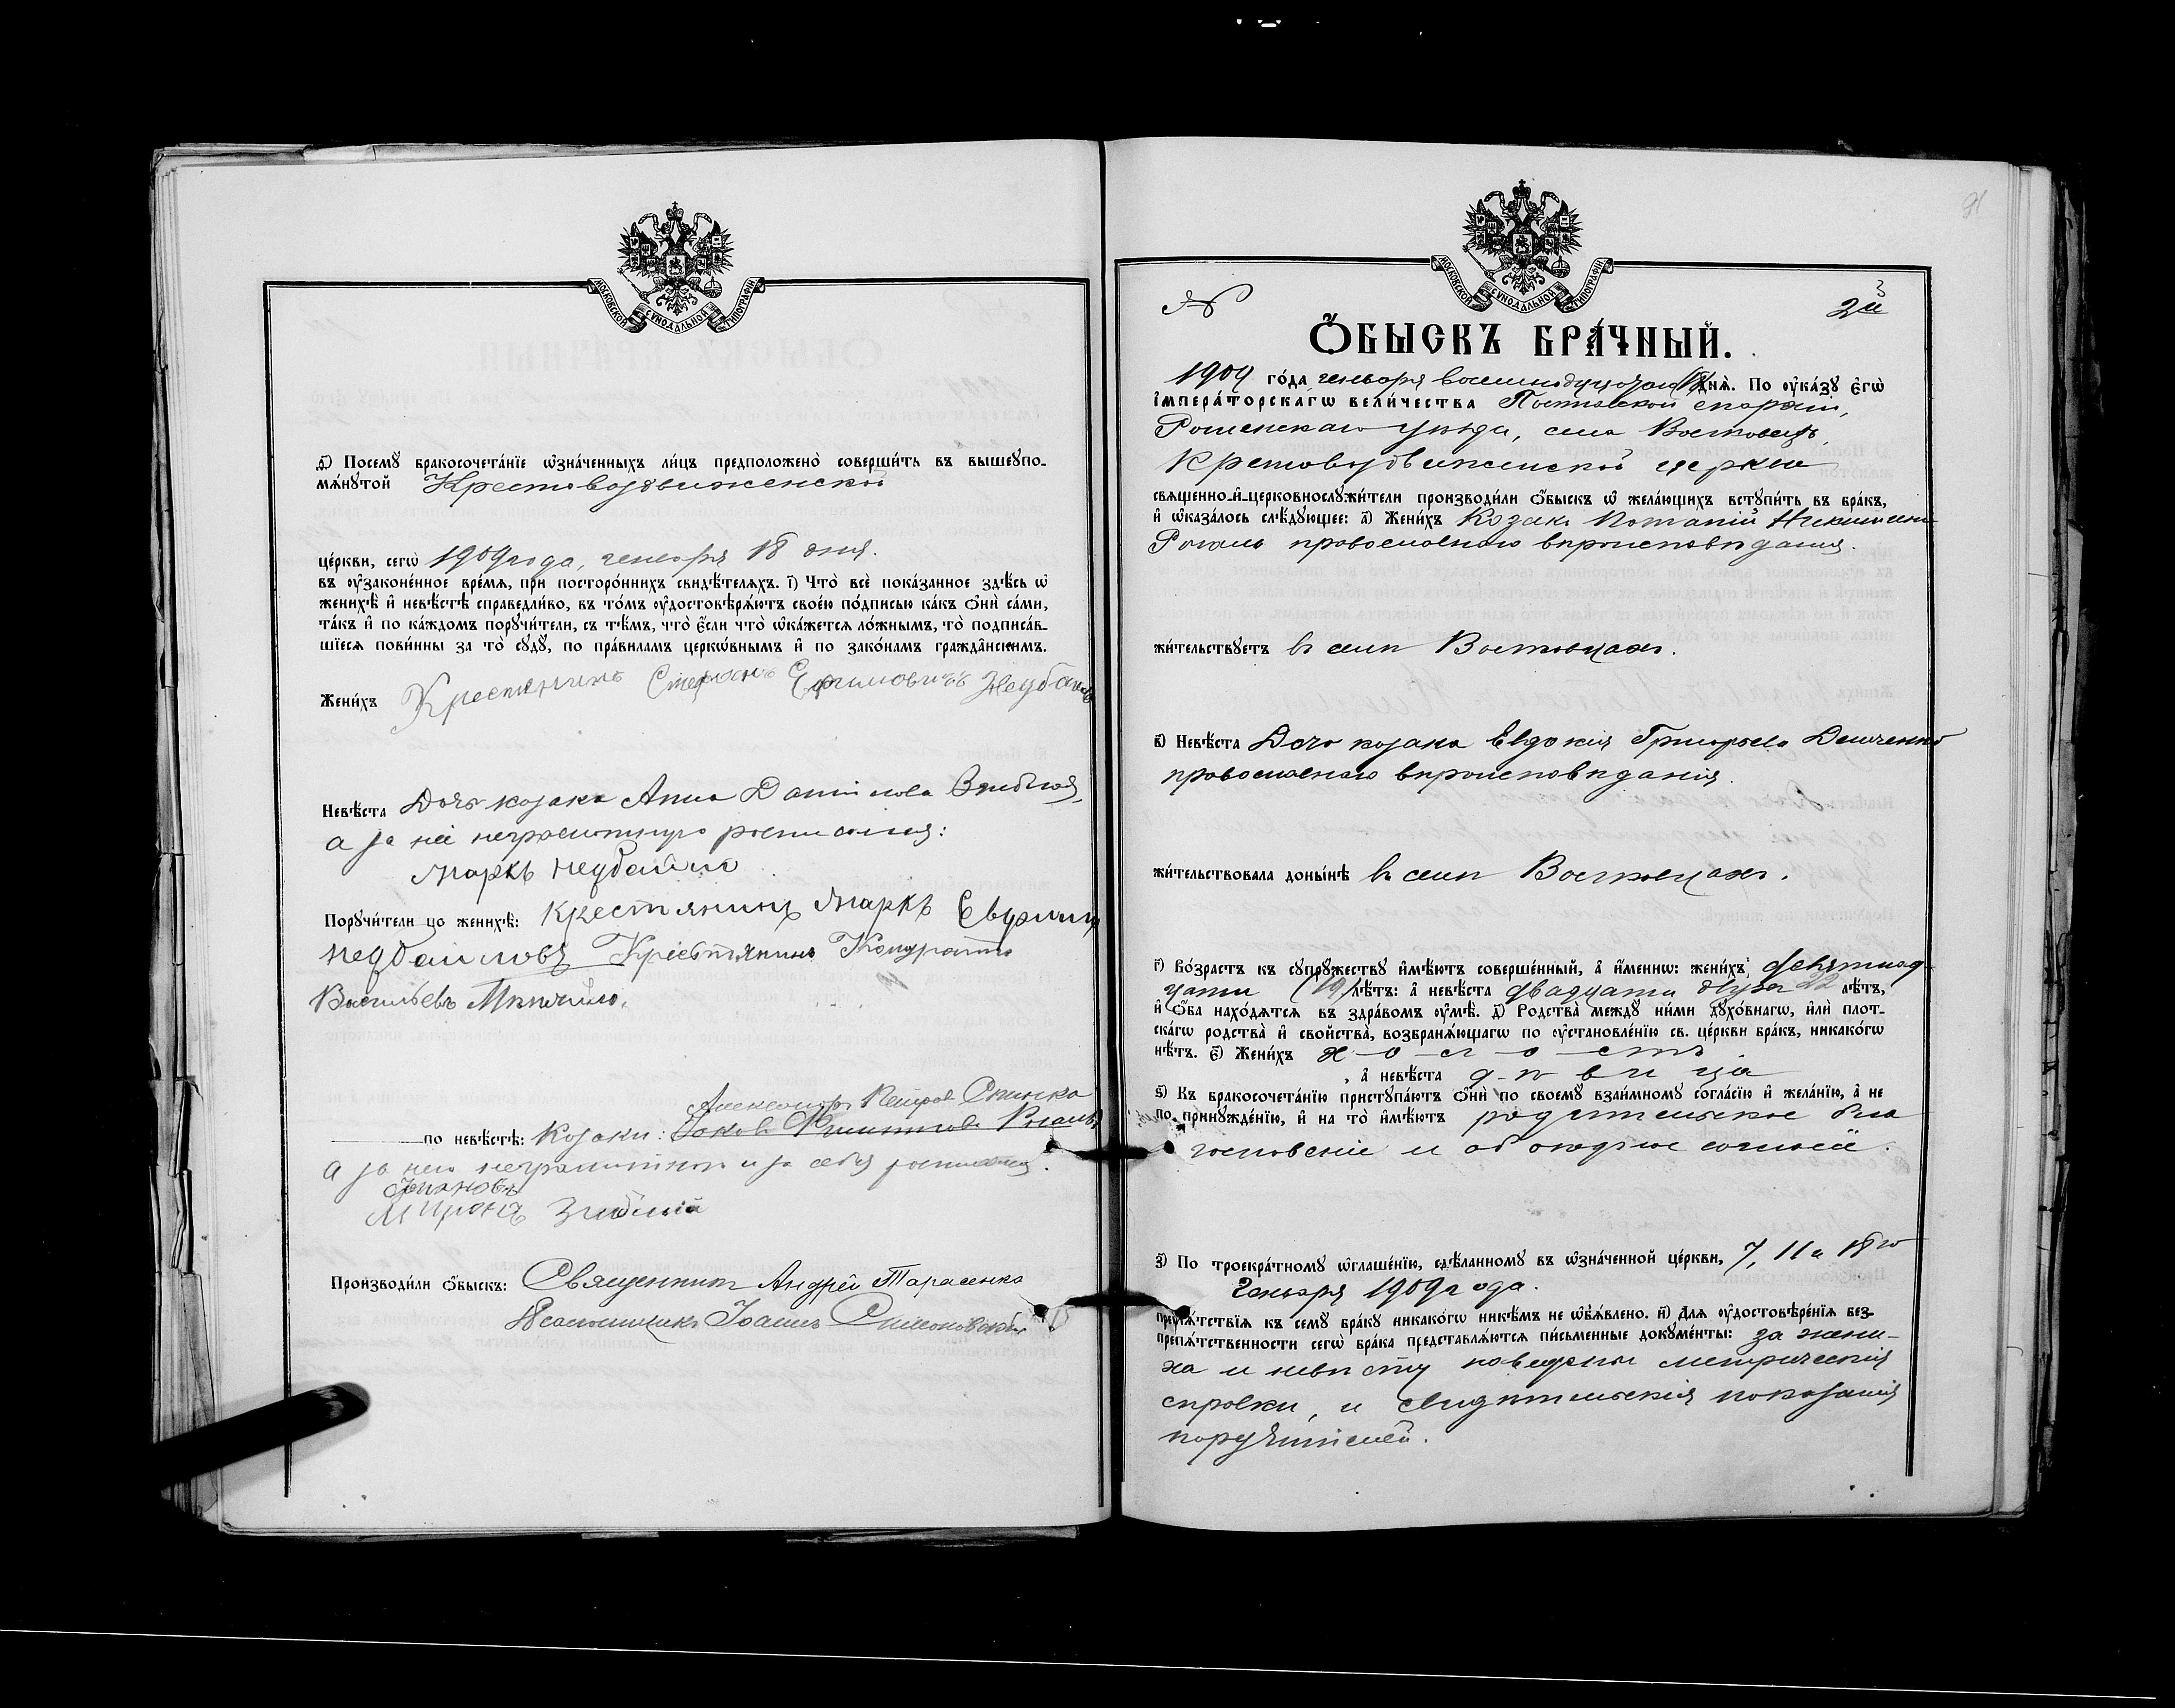 МОСКОВСКОЙ СѴНОДАЛЬНОЙ ТИПОГРАФІИ
ѳ҃) Посемꙋ̀ бракосочета́нїе ѡ҆зна́ченныхъ ли́цъ предположено̀ соверши́ть въ вышеꙋпо-
мѧ́нꙋтой Крестовоздвиженской
це́ркви, сегѡ̀ 1909 года, генваря 18 дня.
въ ᲂу҆законе́нное вре́мѧ, при посторо́ннихъ свидѣ́телѧхъ. і҃) Что̀ всѐ пока́занное здѣ́сь ѡ҆
женихѣ̀ и҆ невѣ́стѣ справедли́во, въ то́мъ ᲂу҆достовѣрѧ́ютъ свое́ю по́дписью ка́къ ѻ҆нѝ са́ми,
та́къ и҆ по ка́ждомъ порꙋчи́тели, съ тѣ́мъ, что̀ є҆́сли что̀ ѡ҆ка́жетсѧ ло́жнымъ, то̀ подписа́в-
шїесѧ пови́нны за то̀ сꙋдꙋ̀, по пра́виламъ церкѡ́внымъ и҆ по зако́намъ гражда̂нскимъ.
Жени́хъ Крестянинъ Стефанъ Ефимовичъ Недбайло
Невѣ́ста Дочь козака Анна Даніилова
а за неё неграмотную росписался:
Маркъ Недбайло
Порꙋчи́тели по женихѣ̀: Крестянинъ Маркъ
Недбаиловъ Крестянинъ Кондратъ
Васильевъ
Александръ Петровъ
по невѣ́стѣ: Козаки: Яковъ
а за него неграмотного и за себя росписался.
Миронъ
Производи́ли ѻ҆́быскъ: Священникъ Андрей Тарасенко
Псаломщикъ Іоаннъ Симоновскій
91
МОСКОВСКОЙ СѴНОДАЛЬНОЙ ТИПОГРАФІИ
№
3
2й
Ѻ҆́БЫСКЪ БРА́ЧНЫЙ.
1909 го́да генваря восемнадцатаго 18 днѧ̀. По ᲂу҆ка́зꙋ є҆гѡ̀
і҆мпера́торскагѡ вели́чества Полтавской епархіи,
Роменскаго уѣзда, села
Крестовоздвиженской церкви
свѧще́нно-и҆-церковнослꙋжи́тели производи́ли ѻ҆́быскъ ѡ҆ жела́ющихъ встꙋпи́ть въ бра́къ,
и҆ ѡ҆каза́лось слѣ́дꙋющее: а҃) Жени́хъ Козакъ Потапій Никитинъ
Рогаль православнаго вѣроисповѣданія.
жи́тельствꙋетъ въ селѣ
в҃) Невѣ́ста Дочь козака Евдокія Григорьева Демченко
православнаго вѣроисповѣданія.
жи́тельствовала доны́нѣ въ селѣ
г҃) Во́зрастъ къ сꙋпрꙋ́жествꙋ и҆мѣ́ютъ соверше́нный, а҆ и҆́меннѡ: жени́хъ девятнад-
цати (19) лѣ́тъ: а҆ невѣ́ста двадцати двухъ 22 лѣ́тъ,
и҆ ѻ҆́ба нахо́дѧтсѧ въ здра́вомъ ᲂу҆мѣ̀. д҃) Родства̀ междꙋ̀ ни́ми дꙋхо́внагѡ, и҆лѝ пло́т-
скагѡ родства̀ и҆ сво́йства, возбранѧ́ющагѡ по ᲂу҆становле́нїю св. це́ркви бра́къ, никако́гѡ
нѣ́тъ. є҃) Жени́хъ х о л о стъ
, а҆ невѣ́ста д ѣ в и ца
ѕ҃) Къ бракосочета́нїю пристꙋпа́ютъ ѻ҆нѝ по своемꙋ̀ взаи́мномꙋ согла́сїю и҆ жела́нїю, а҆ не
по принꙋжде́нїю, и҆ на то̀ и҆мѣ́ютъ родительское бла
гословеніе и обоюдное согласіе.
з҃) По троекра́тномꙋ ѡ҆глаше́нїю, сдѣ́ланномꙋ въ ѡ҆зна́ченной це́ркви, 7, 11 и 18го
Генваря 1909 года.
препѧ́тствїѧ къ семꙋ̀ бра́кꙋ никако́гѡ никѣ́мъ не ѡ҆б̾ѧ́влено. и҃) Длѧ ᲂу҆достовѣре́нїѧ без-
препѧ́тственности сегѡ̀ бра́ка представлѧ́ютсѧ пи́сьменные докꙋме́нты: за жени-
ха и невѣсту наведены метрическія
справки, и свидѣтельскія показанія
поручителей.